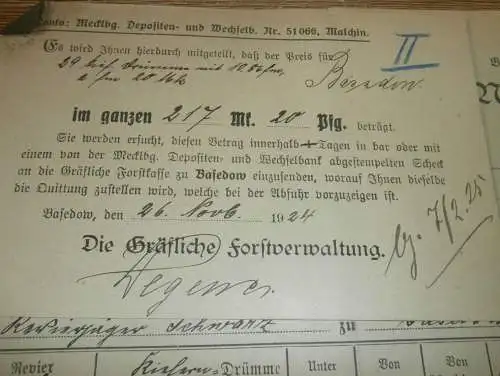 Konto: Mecklbg. Depositen- und Wechselb. Nr. 51066, Malchin.
II
Es wird Ihnen hierdurch mitgeteilt, daß der Preis für
29 kief. Drümme mit 10.86 fm,
a fm 20 Mk
Basedow
im ganzen 217 Mk. 20 Pfg. beträgt.
Sie werden ersucht, diesen Betrag innerhalb Tagen in bar oder mit
einem von der Mecklbg. Depositen- und Wechselbank abgestempelten Scheck
an die Gräfliche Forstkasse zu Basedow einzusenden, worauf Ihnen dieselbe
die Quittung zustellen wird, welche bei der Abfuhr vorzuzeigen ist.
Basedow, den 26. Novb. 1924
Die Gräfliche Forstverwaltung.
bz. 7/2. 25.
Degener
Revierjäger Schwarz zu
Revier Kiefern-Drümme Unter Von Von